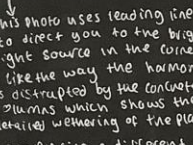 his photo uses leading line
to direct you to the brig
ight source in the corne
like the way the harmon
s distrupted by the concrete
olumns which shows th
etailed wethering of the pla